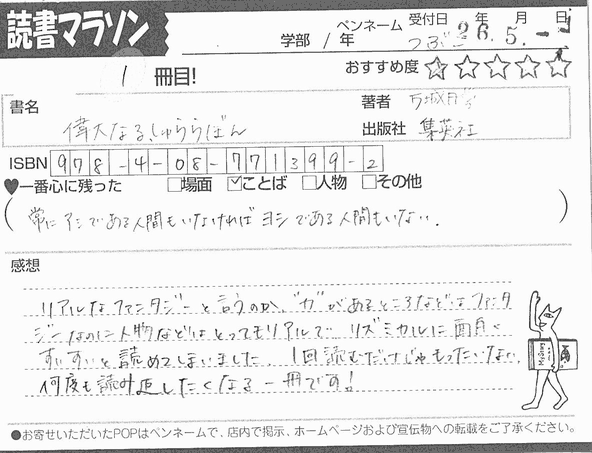 読書マラソン
学部 / 年
ペンネーム つぶこ
受付日 26年 5月 -1日
1 冊目!
おすすめ度 ☆☆☆☆☆
書名 偉大なる、しゅららぼん
著者 万城目学
出版社 集英社
ISBN 978-4-08-771399-2
♥一番心に残った □場面 ☑ことば □人物 □その他
(常にアシである人間もいなければヨシである人間もいない.)
感想
リアルなファンタジーと言うのか、"力"があるところなどはファンタ
ジーなのに人物などはとってもリアルで リズミカルに面白く
すいすいと読めてしまいました. 1回読むだけじゃもったいない、
何度も読み返したくなる一冊です!
●お寄せいただいたPOPはペンネームで、店内で掲示、ホームページおよび宣伝物への転載をご了承ください。